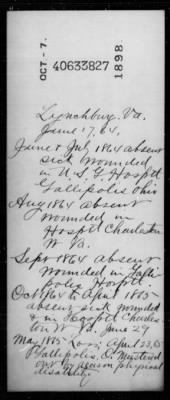 OCT.-7.
40633827
1898
Lynchburg, Va.
June 17, 64.
June & July 1864 absent
sick wounded
in U.S.G. Hospt
Gallipolis Ohio
Aug 1864 absent
wounded in
Hospt Charleston
W. Va.
Sept 1864 absent
wounded in Galli-
polis Hospt.
Oct 1864 to April 1865
absent sick wounded
& in Hospt Charles-
ton W. Va. June 29
May 1865 April 23, 65
Gallipolis, O. Mustered
out by reason physical
disability